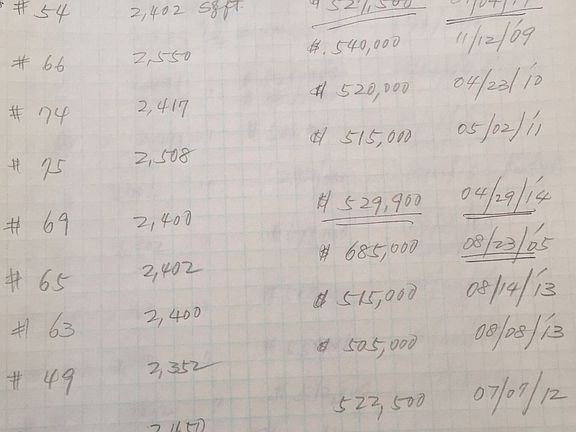 # 54 2,402 sqft $527,500
# 66 2,550 $540,000 11/12/'09
# 74 2,417 $520,000 04/23/'10
# 75 2,508 $515,000 05/02/'11
# 69 2,400 $529,900 04/29/'14
# 65 2,402 $685,000 08/23/'05
# 63 2,400 $515,000 08/14/'13
# 49 2,352 $505,000 08/08/'13
522,500 07/09/'12